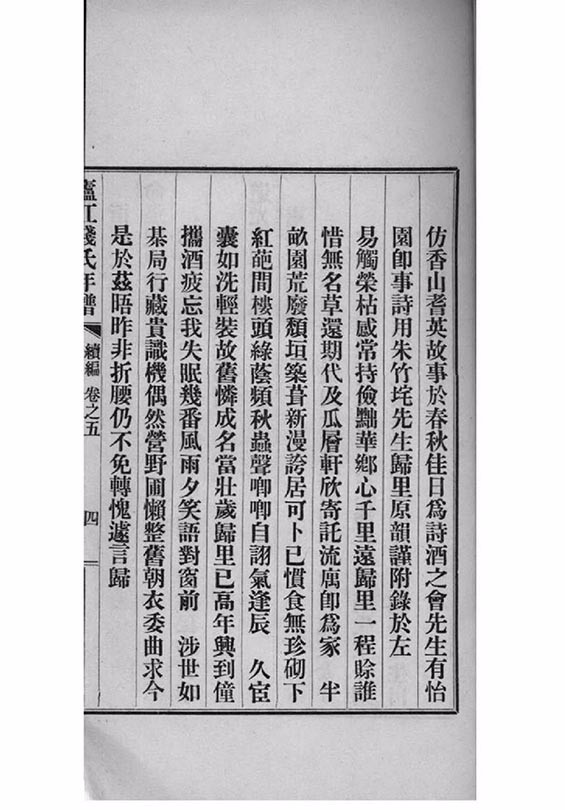 仿香山耆英故事於春秋佳日爲詩酒之會先生有怡
園卽事詩用朱竹垞先生歸里原韻謹附錄於左
易觸榮枯感常持儉黜華鄉心千里遠歸里一程賒誰
惜無名草還期代及瓜層軒欣寄託流廣卽爲家　半
畝園荒廢頹垣築葺新漫誇居可卜已慣食無珍砌下
紅葩間樓頭綠蔭頻秋蟲聲唧唧自詡氣逢辰　久宦
囊如洗輕裝故舊憐成名當壯歲歸里已高年興到僮
攜酒疲忘我失眠幾番風雨夕笑語對窗前　涉世如
棊局行藏貴識機偶然營野圃懶整舊朝衣委曲求今
是於茲晤昨非折腰仍不免轉愧遽言歸
廬江錢氏年譜 續編 卷之五 四